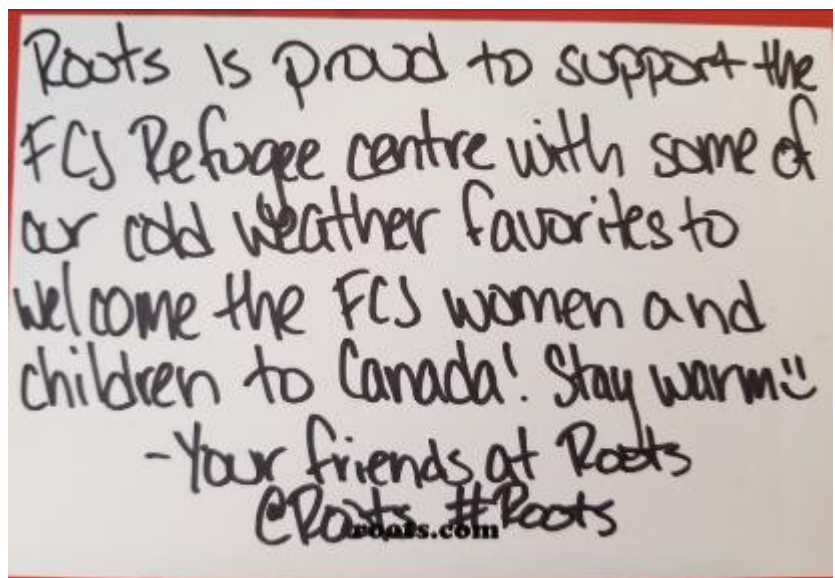 Roots is proud to support the
FCJ Refugee centre with some of
our cold weather favorites to
welcome the FCJ women and
children to Canada! Stay warm :)
-Your friends at Roots
@Roots #Roots
roots.com